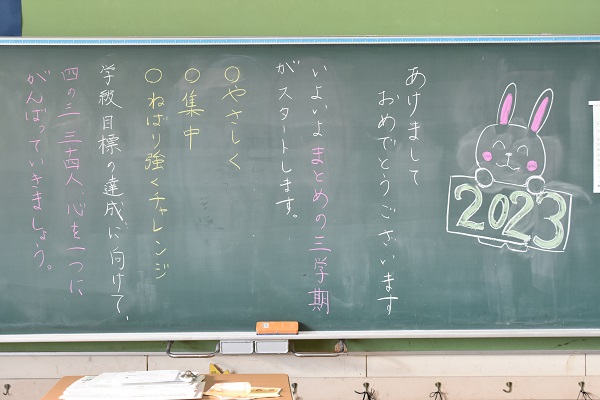 あけまして
おめでとうございます
2023
いよいよまとめの三学期
がスタートします。
○やさしく
○集中
○ねばり強くチャレンジ
学級目標の達成に向けて、
四の三 三十四人 心を一つに
がんばっていきましょう。